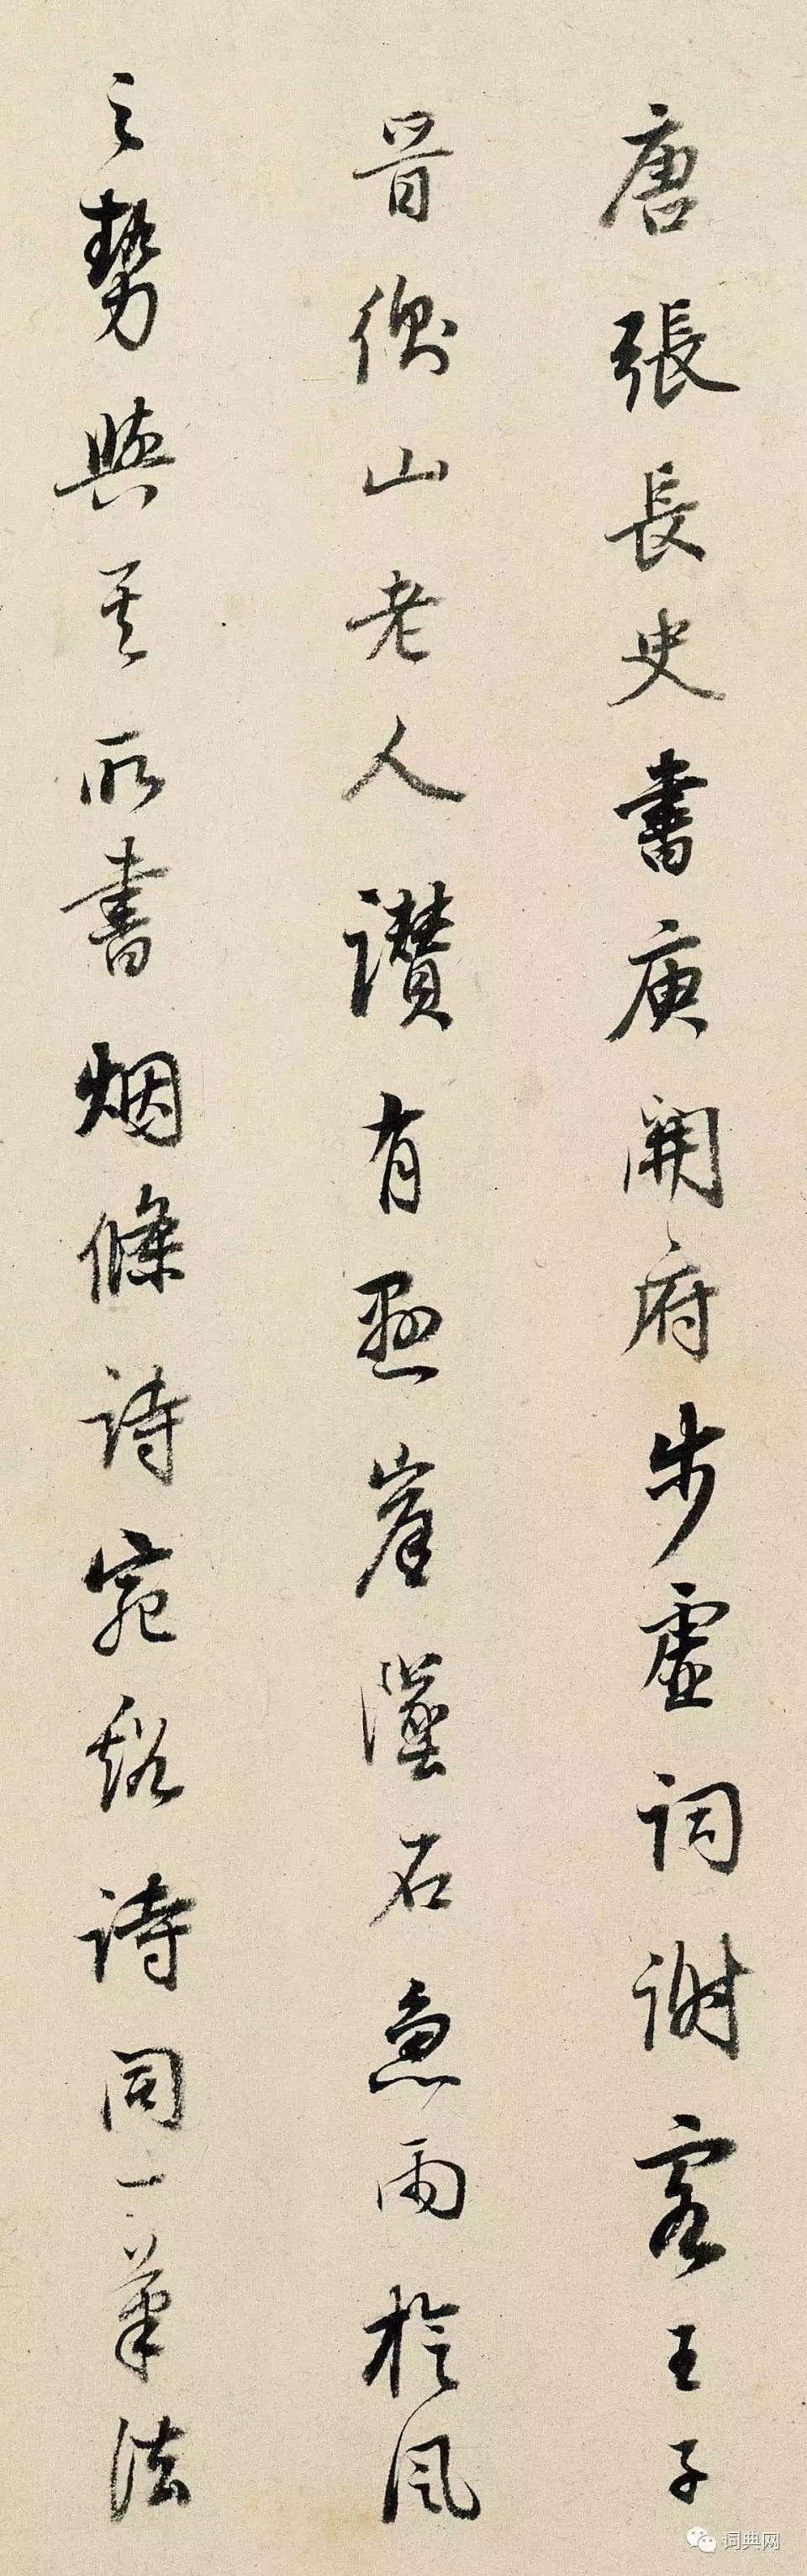 唐張長史書庾開府步虛詞謝客王子
晉衡山老人讃有懸崖墜石急雨旋風
之勢與其所書烟條詩宛谿詩同一筆法
词典网